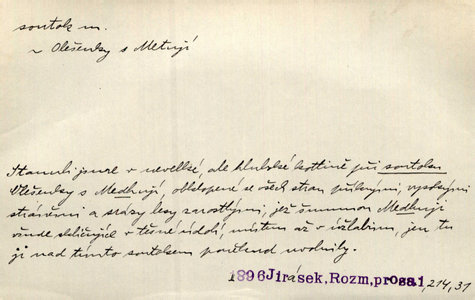 soutok m.
~ Olešenky s Metují
Stanuli jsme v nevelké, ale hluboké kotlině při soutoku
Olešenky s Medhují, obklopené se všech stran příkrými, vysokými
stráněmi a srázy lesy zarostlými, jež šumnou Medhuji
všude sklíčujíce v těsné údolí, místem až v úžlabinu, jen tu
jí nad tímto soutokem poněkud uvolnily.
1896 Jirásek, Rozm, prosa1, 214, 31